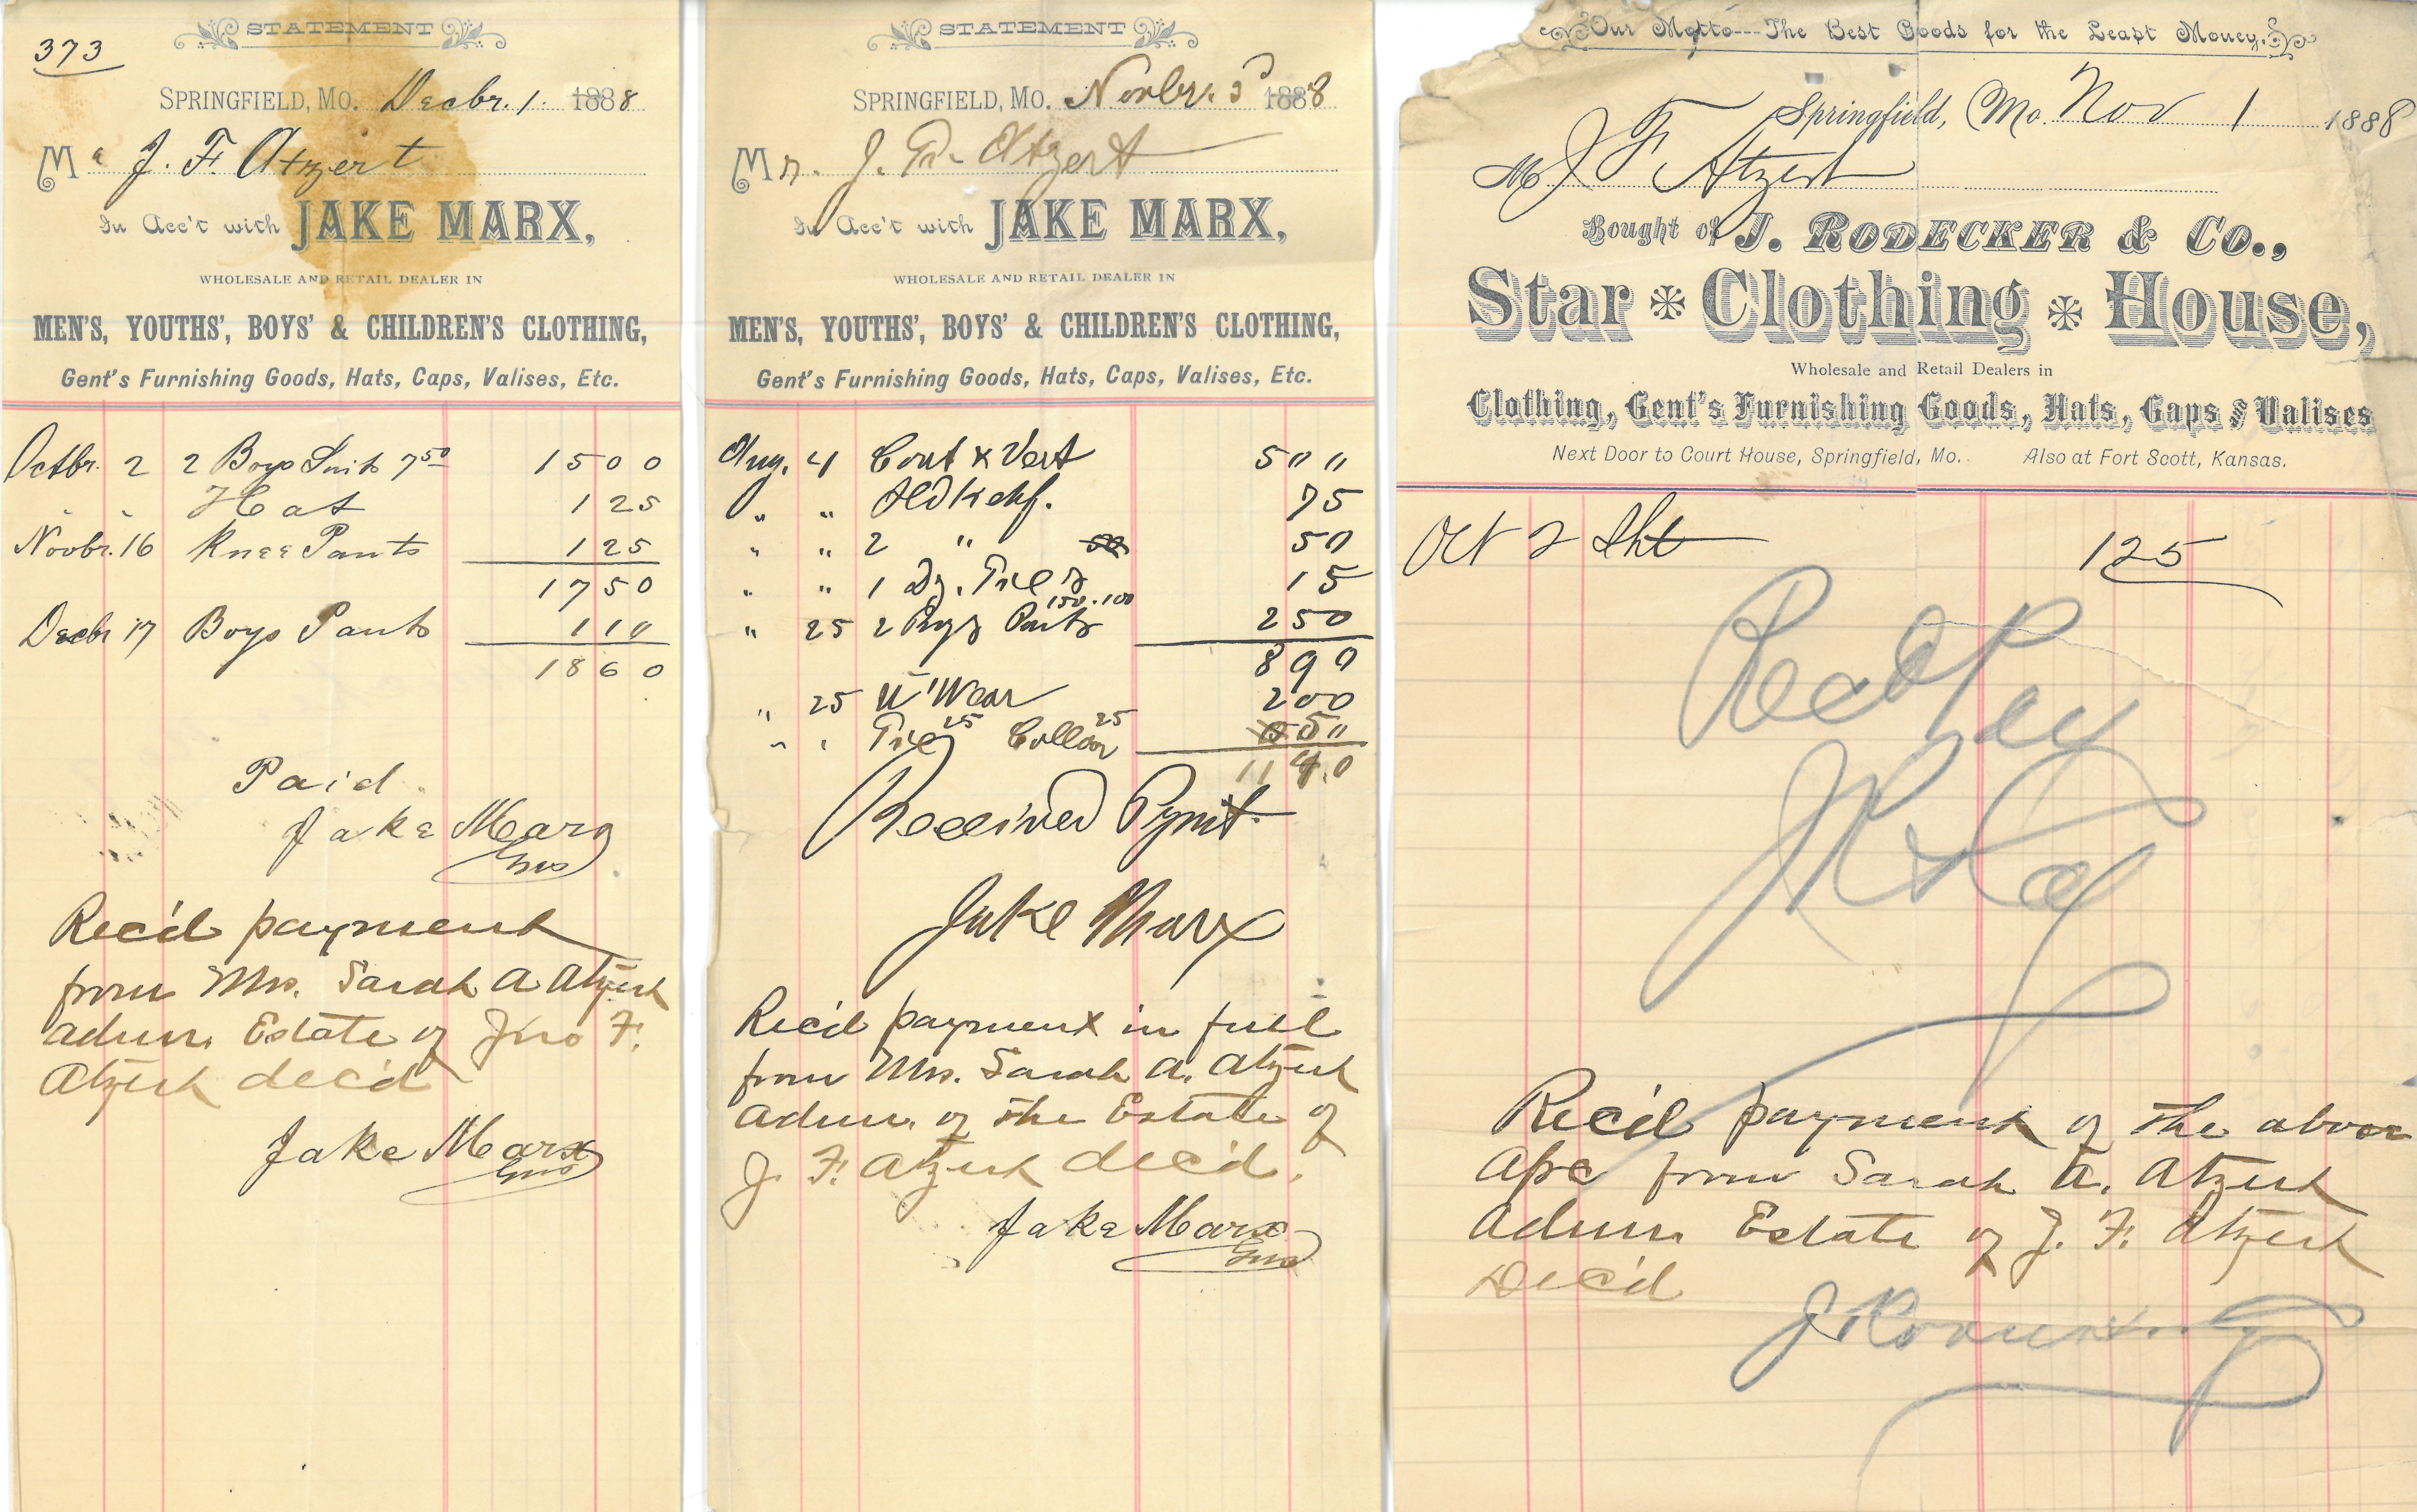 STATEMENT
373
SPRINGFIELD, MO. Decbr. 1. 1888
M J. F. Atzert
In Acc't with JAKE MARX,
WHOLESALE AND RETAIL DEALER IN
MEN'S, YOUTHS', BOYS' & CHILDREN'S CLOTHING,
Gent's Furnishing Goods, Hats, Caps, Valises, Etc.
Octbr. 2 2 Boys Suits 7 50 15 00
" " Hat 1 25
Novbr. 16 Knee Pants 1 25
17 50
Decbr 17 Boys Pants 1 10
18 60
Paid.
Jake Marx
Rec'd payment
from Mrs. Sarah A Atzert
admr. Estate of Jno F.
Atzert dec'd
Jake Marx
STATEMENT
SPRINGFIELD, MO. Novbr. 3 1888
Mr. J. F. Atzert
In Acc't with JAKE MARX,
WHOLESALE AND RETAIL DEALER IN
MEN'S, YOUTHS', BOYS' & CHILDREN'S CLOTHING,
Gent's Furnishing Goods, Hats, Caps, Valises, Etc.
Aug. 4 Coat & Vest 5 " "
" " Hdkchf. 75
" " 2 " 50
" " 1 Dz. Ties 15
150. 100
" 25 2 Boys Pants 2 50
8 90
" 25 U'Wear 2 00
" " Tie 25 Collar 25 50
11 40
Received Pymt.
Jake Marx
Rec'd payment in full
from Mrs. Sarah A. Atzert
admr. of the Estate of
J. F. Atzert dec'd.
Jake Marx
Our Motto---The Best Goods for the Least Money.
Springfield, Mo. Nov 1 1888
M J F Atzert
Bought of J. RODECKER & CO.,
Star Clothing House,
Wholesale and Retail Dealers in
Clothing, Gent's Furnishing Goods, Hats, Caps & Valises
Next Door to Court House, Springfield, Mo. Also at Fort Scott, Kansas.
Oct 2 Sht 1 25
Recd Pay
J R & Co
Rec'd payment of the above
a/c from Sarah A. Atzert
Admr. Estate of J. F. Atzert
Dec'd